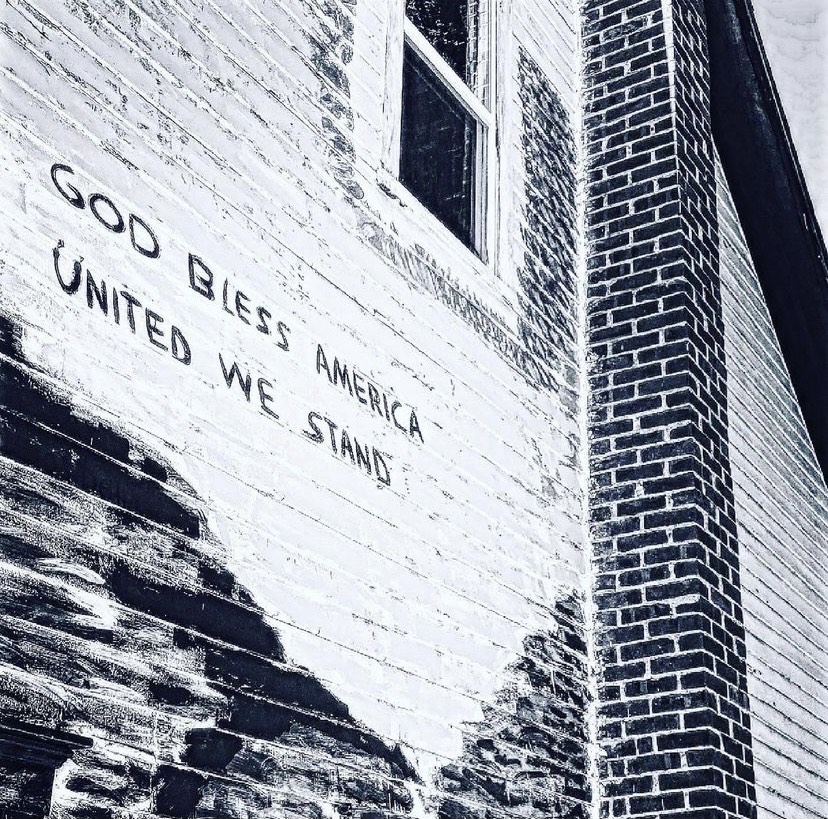 GOD BLESS AMERICA
UNITED WE STAND